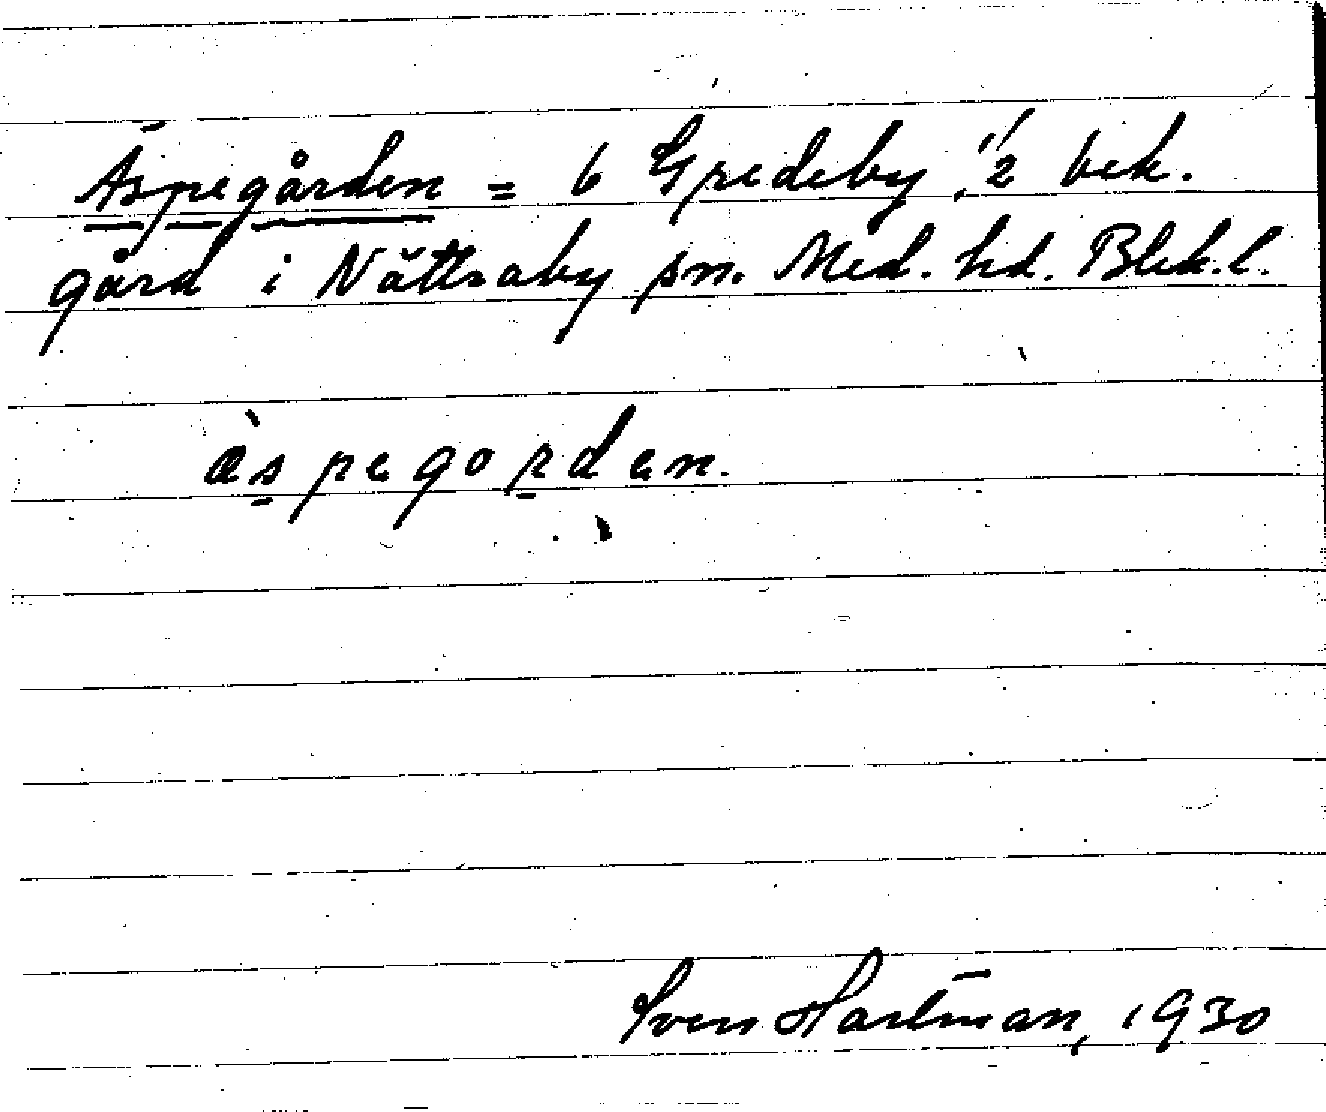 Äspegården = 6 Gredeby, 1/2 bek.
gård i Nättraby sn. Med. hd. Blek. l.
æ̀spegorden.
Sven Hartman, 1930